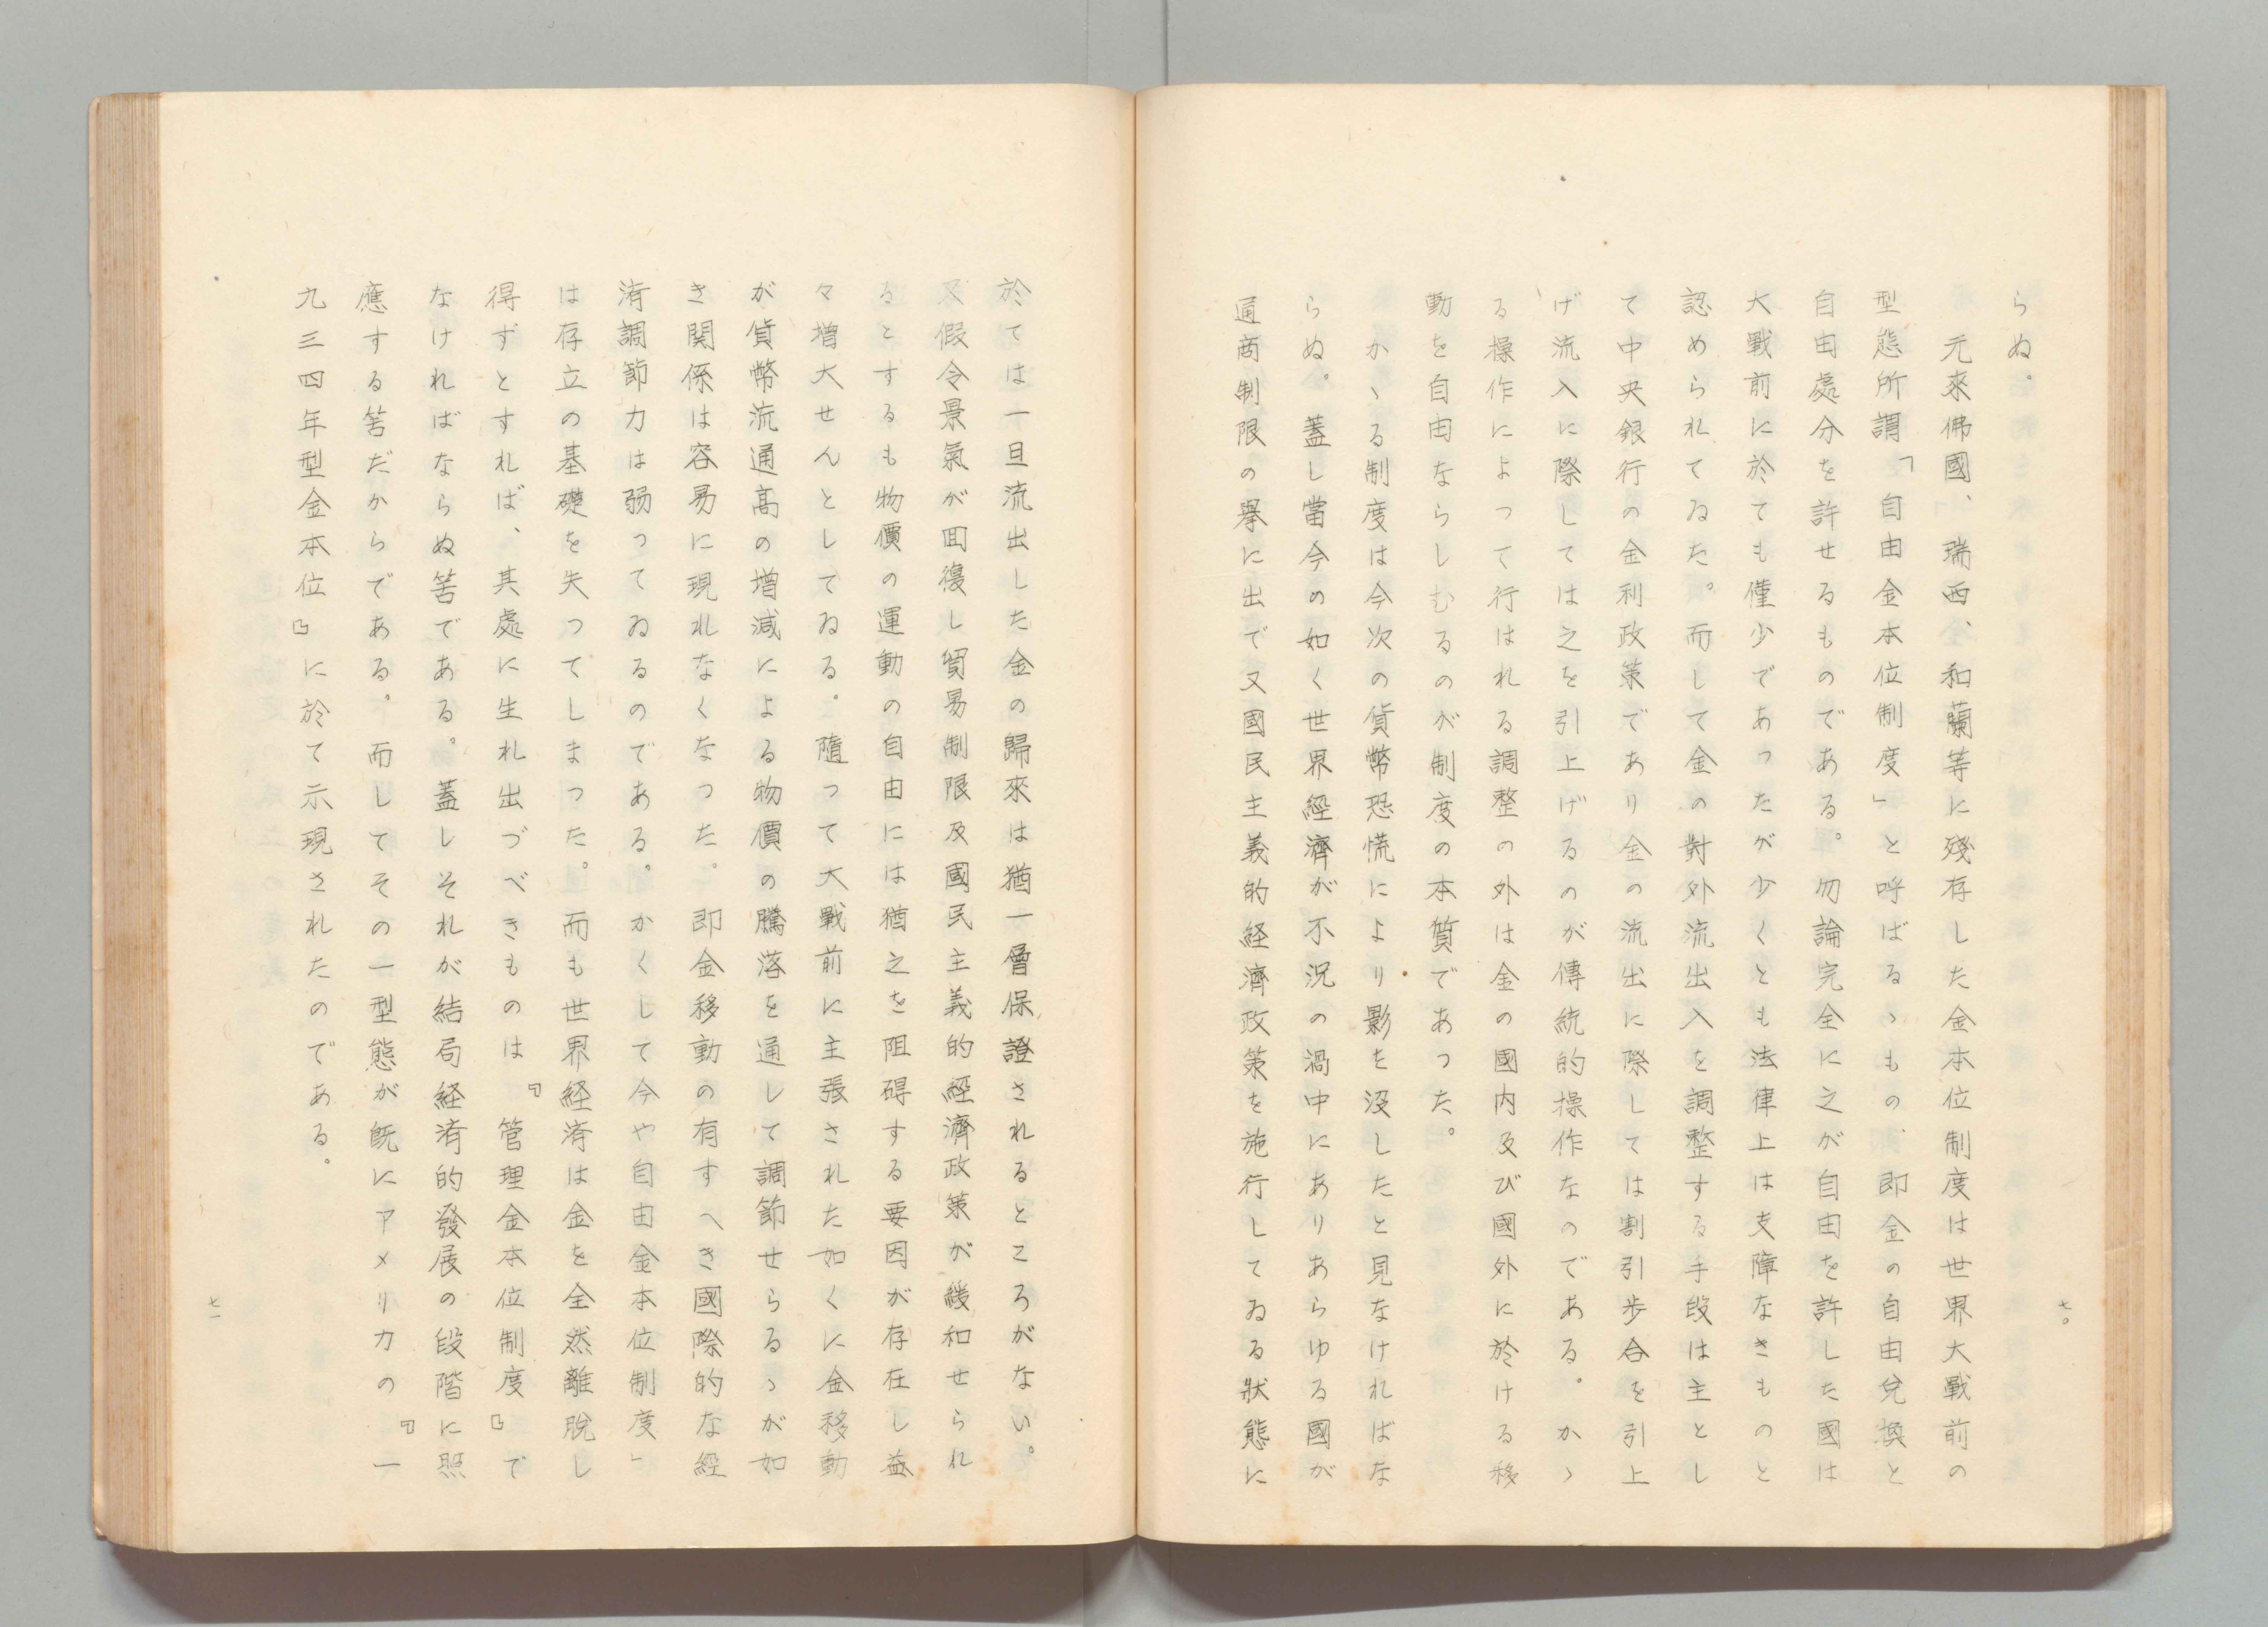 らぬ。
元來佛國、瑞西、和蘭等に殘存した金本位制度は世界大戰前の
型態所謂「自由金本位制度」と呼ばるゝもの、即金の自由兌換と
自由處分を許せるものである。勿論完全に之が自由を許した國は
大戰前に於ても僅少であったが少くとも法律上は支障なきものと
認められてゐた。而して金の對外流出入を調整する手段は主とし
て中央銀行の金利政策であり金の流出に際しては割引歩合を引上
げ流入に際しては之を引上げるのが傳統的操作なのである。かゝ
る操作によつて行はれる調整の外は金の國内及び國外に於ける移
動を自由ならしむるのが制度の本質であつた。
かゝる制度は今次の貨幣恐慌により影を沒したと見なければな
らぬ。蓋し當今の如く世界經濟が不況の渦中にありあらゆる國が
通商制限の擧に出で又國民主義的経濟政策を施行してゐる狀態に
七〇
於ては一旦流出した金の歸來は猶一層保證されるところがない。
又假令景氣が囬復し貿易制限及國民主義的經濟政策が緩和せられ
るとするも物價の運動の自由には猶之を阻碍する要因が存在し益
々増大せんとしてゐる。隨って大戰前に主張された如くに金移動
が貨幣流通高の増減による物價の騰落を通して調節せらるゝが如
き関係は容易に現れなくなつた。即金移動の有すへき國際的な經
済調節力は弱ってゐるのである。かくして今や自由金本位制度」
は存立の基礎を失つてしまつた。而も世界経済は金を全然離脫し
得ずとすれば、其處に生れ出づべきものは『管理金本位制度』で
なければならぬ筈である。蓋しそれが結局経済的發展の段階に照
應する筈だからである。而してその一型態が既にアメリカの『一
九三四年型金本位』に於て示現されたのである。
七一